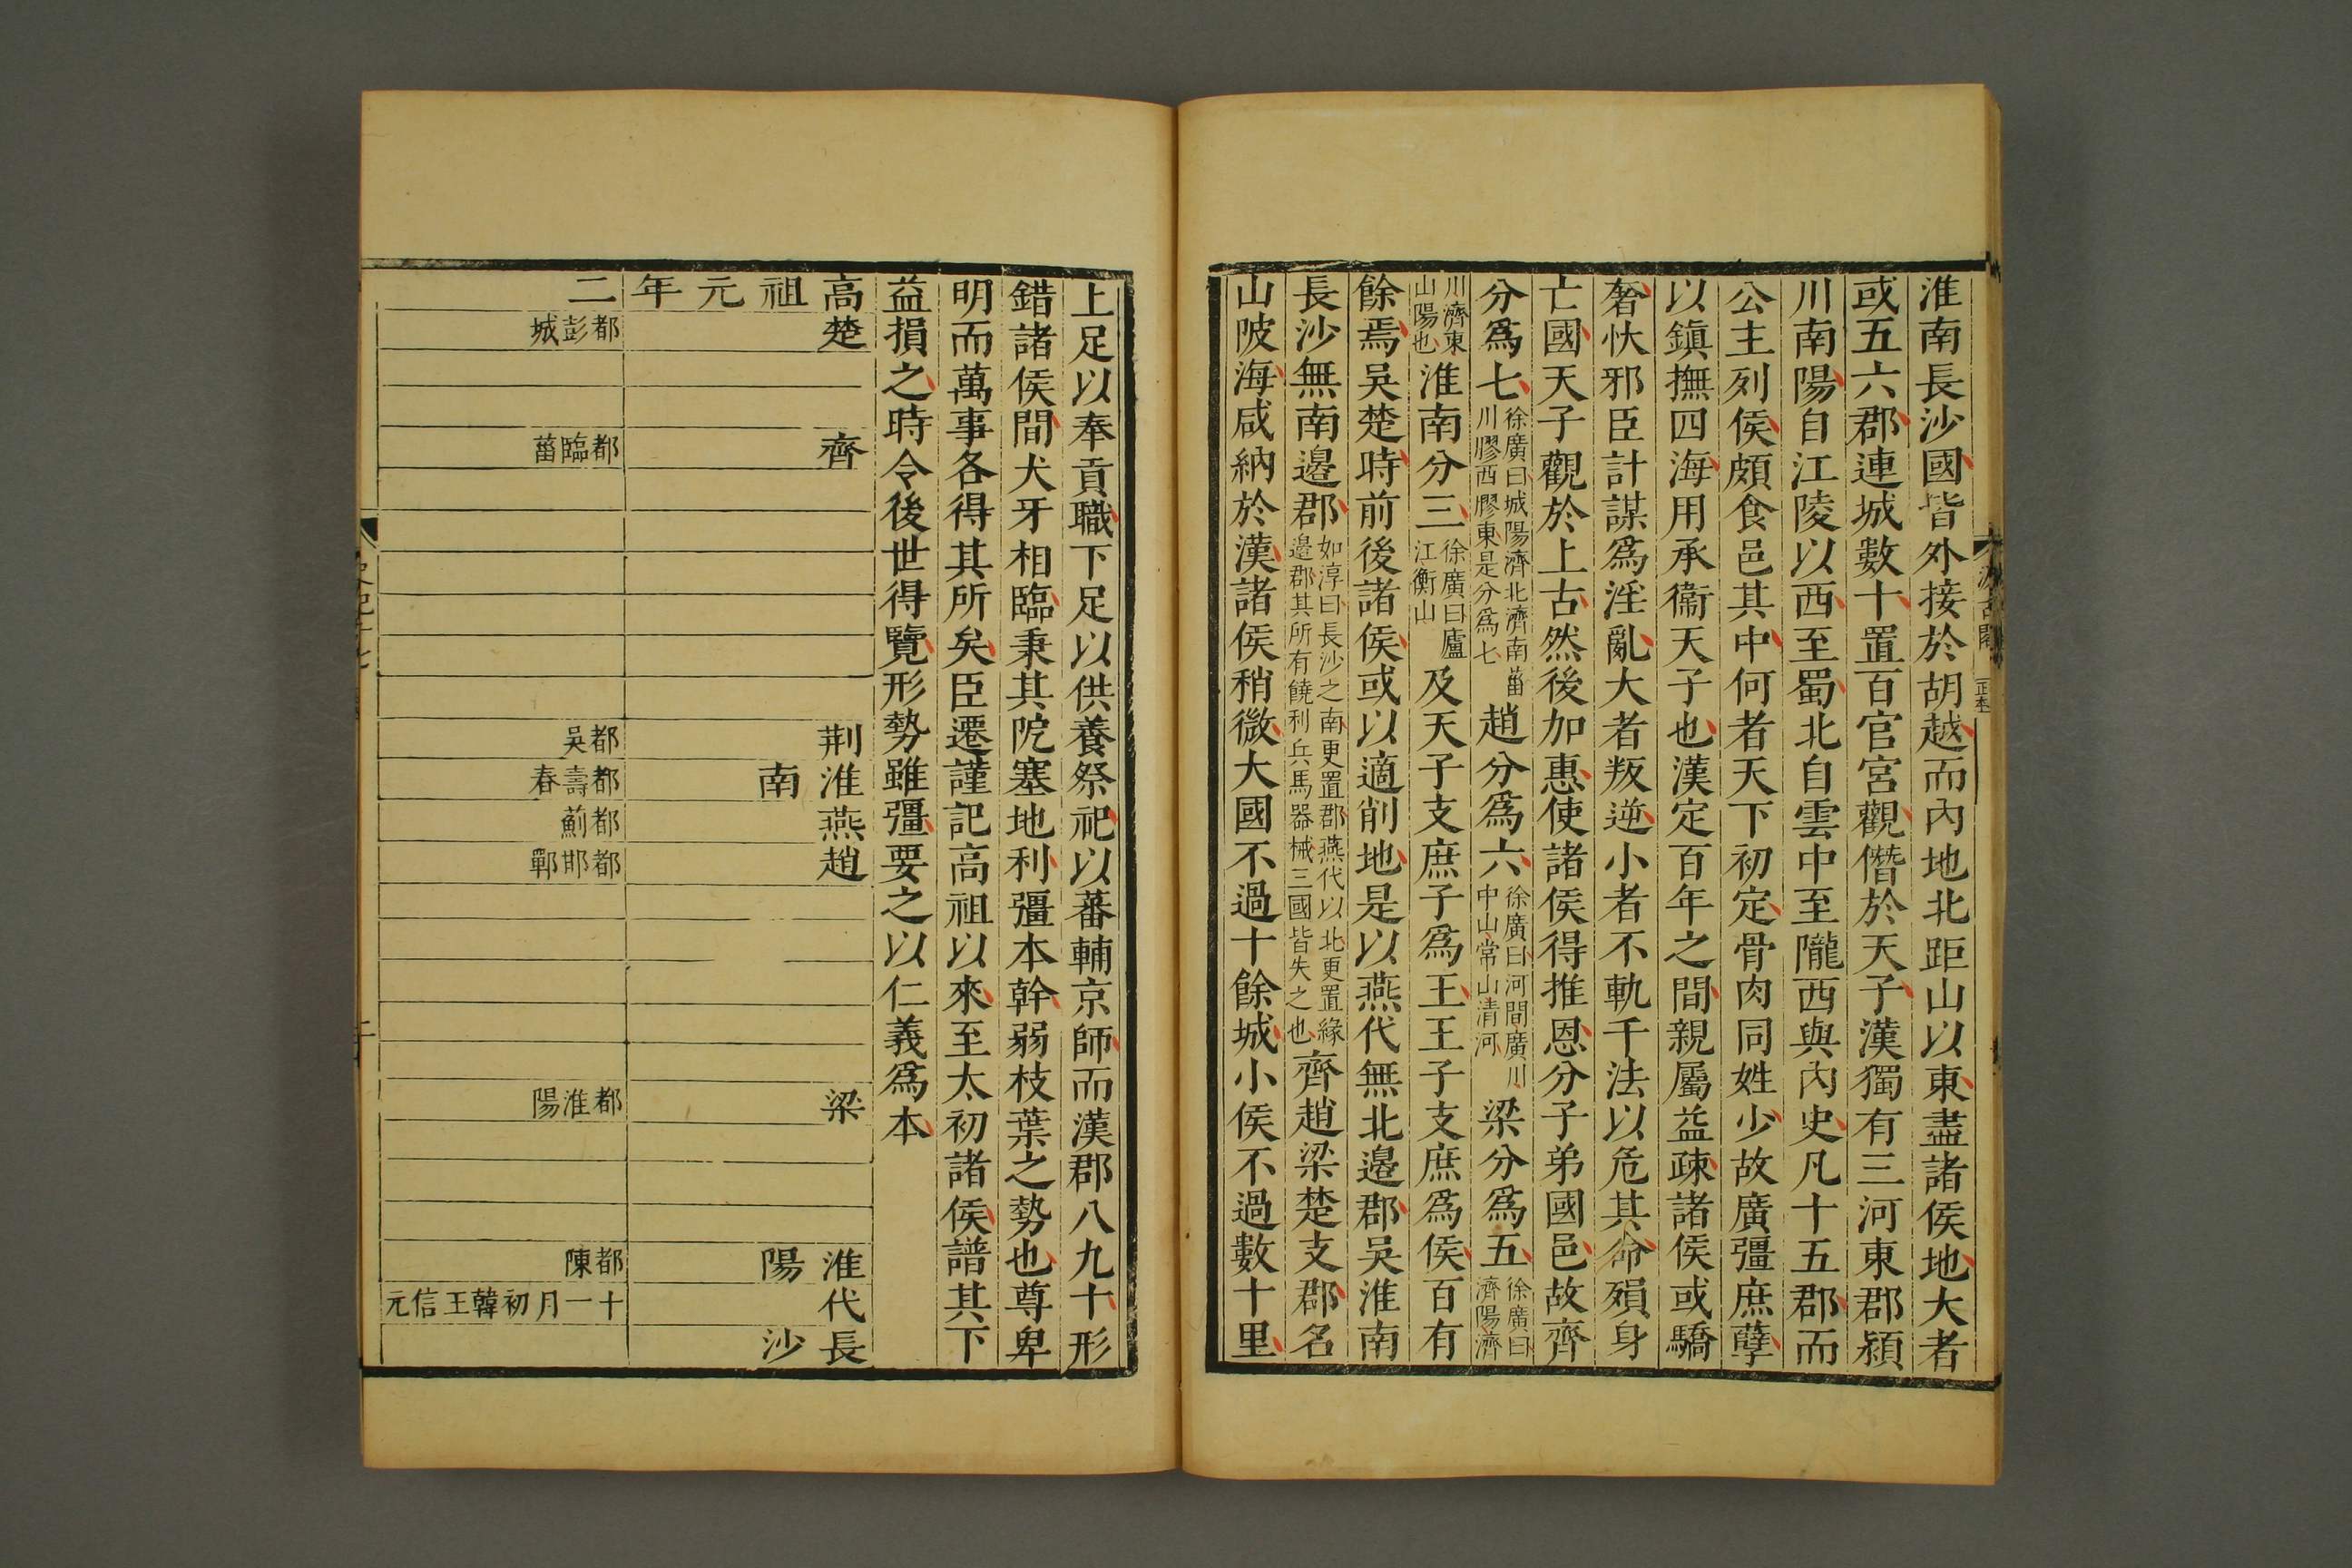 淮南長沙國皆外接於胡越而內地北距山以東盡諸侯地大者
或五六郡連城數十置百官宮觀僭於天子漢獨有三河東郡潁
川南陽自江陵以西至蜀北自雲中至隴西與內史凡十五郡而
公主列侯頗食邑其中何者天下初定骨肉同姓少故廣彊庶孽
以鎮撫四海用承衞天子也漢定百年之間親屬益疎諸侯或驕
奢忕邪臣計謀爲淫亂大者叛逆小者不軌千法以危其命殞身
亡國天子觀於上古然後加惠使諸侯得推恩分子弟國邑故齊
分爲七徐廣曰城陽濟北濟南菑川膠西膠東是分爲七趙分爲六徐廣曰河間廣川中山常山清河梁分爲五徐廣曰濟陽濟
川濟東山陽也淮南分三徐廣曰廬江衡山及天子支庶子爲王王子支庶爲侯百有
餘焉吳楚時前後諸侯或以適削地是以燕代無北邊郡吳淮南
長沙無南邊郡如淳曰長沙之南更置郡燕代以北更置緣邊郡其所有饒利兵馬器械三國皆失之也齊趙梁楚支郡名
山陂海咸納於漢諸侯稍微大國不過十餘城小侯不過數十里
上足以奉貢職下足以供養祭祀以蕃輔京師而漢郡八九十形
錯諸侯間犬牙相臨秉其阨塞地利彊本幹弱枝葉之勢也尊卑
明而萬事各得其所矣臣遷謹記高祖以來至太初諸侯譜其下
益損之時令後世得覽形勢雖彊要之以仁義爲本
高祖元年
楚
齊
荆
淮南
燕
趙
梁
淮陽
代
長沙
二
都彭城
都臨菑
都吳
都壽春
都薊
都邯鄲
都淮陽
都陳
十一月初韓王信元